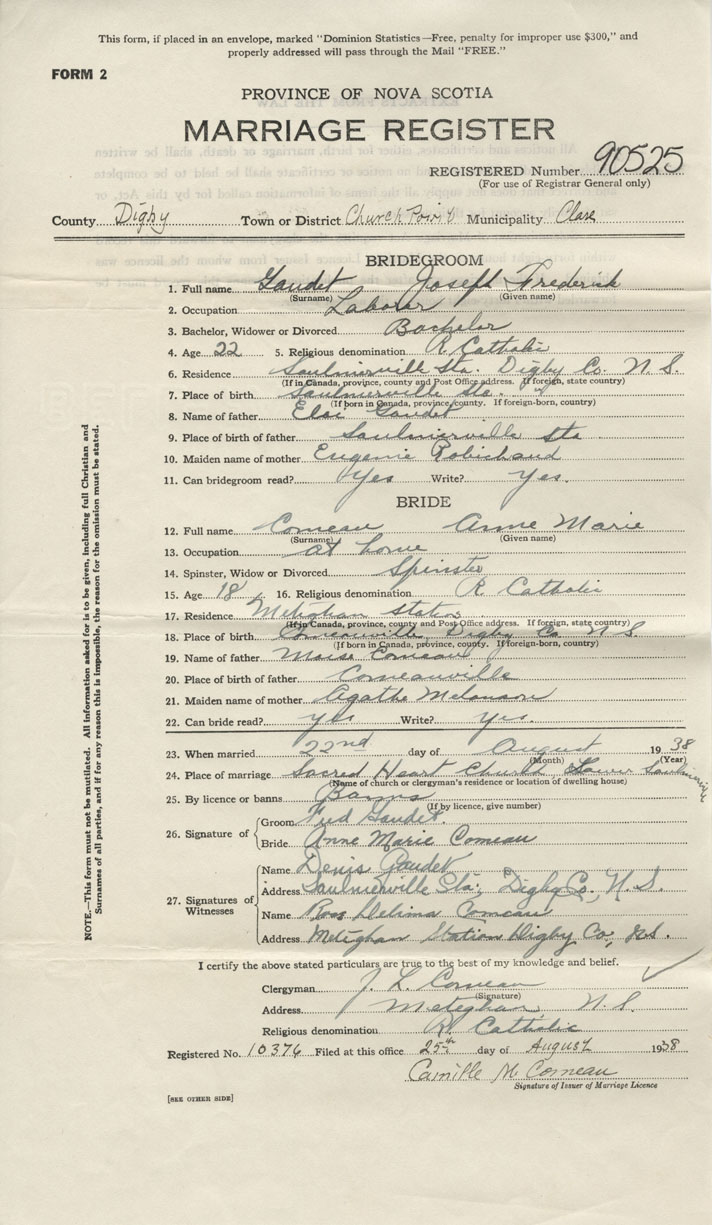 This form, if placed in an envelope, marked "Dominion Statistics—Free, penalty for improper use $300," and
properly addressed will pass through the Mail "FREE."
FORM 2
PROVINCE OF NOVA SCOTIA
MARRIAGE REGISTER
REGISTERED Number 90525
(For use of Registrar General only)
County Digby Town or District Church Point Municipality Clare
BRIDEGROOM
1. Full name Gaudet Joseph Frederick
(Surname) (Given name)
2. Occupation Laborer
3. Bachelor, Widower or Divorced Bachelor
4. Age 22 5. Religious denomination R. Catholic
6. Residence Saulnierville Sta. Digby Co. N. S.
(If in Canada, province, county and Post Office address. If foreign, state country)
7. Place of birth Saulnierville Sta.
(If born in Canada, province, county. If foreign-born, country)
8. Name of father Eloi Gaudet
9. Place of birth of father Saulnierville Sta
10. Maiden name of mother Eugenie Robichaud
11. Can bridegroom read? Yes Write? Yes.
BRIDE
12. Full name Comeau Anne Marie
(Surname) (Given name)
13. Occupation at home
14. Spinster, Widow or Divorced Spinster
15. Age 18 16. Religious denomination R. Catholic
17. Residence Meteghan Station
(If in Canada, province, county and Post Office address. If foreign, state country)
18. Place of birth Comeauville, Digby Co N. S.
(If born in Canada, province, county. If foreign-born, country)
19. Name of father Moise Comeau
20. Place of birth of father Comeauville
21. Maiden name of mother Agathe Melanson
22. Can bride read? yes Write? Yes.
23. When married 22nd day of August 1938
(Month) (Year)
24. Place of marriage Sacred Heart Church Lower Saulnierville
(Name of church or clergyman's residence or location of dwelling house)
25. By licence or banns Banns
(If by licence, give number)
26. Signature of
Groom Fred Gaudet.
Bride Anne Marie Comeau
27. Signatures of Witnesses
Name Denis Gaudet
Address Saulnierville Sta., Digby Co., N. S.
Name Rose Delima Comeau
Address Meteghan Station Digby Co, N.S.
I certify the above stated particulars are true to the best of my knowledge and belief.
Clergyman J. L. Comeau
(Signature)
Address Meteghan, N. S.
Religious denomination R. Catholic
Registered No. 10376 Filed at this office 25th day of August 1938
Camille M Comeau
Signature of Issuer of Marriage Licence
[SEE OTHER SIDE]
NOTE.—This form must not be mutilated. All information asked for is to be given, including full Christian and
Surnames of all parties, and if for any reason this is impossible, the reason for the omission must be stated.